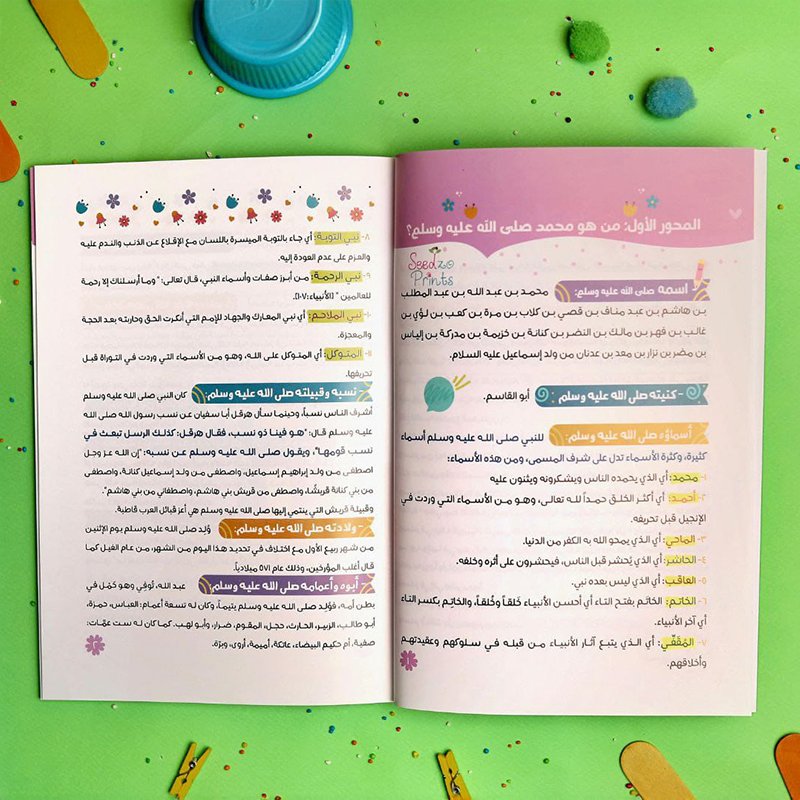 المحور الأول: من هو محمد صلى الله عليه وسلم؟
Seedzo
Prints
أسمه صلى الله عليه وسلم: محمد بن عبد الله بن عبد المطلب
بن هاشم بن عبد مناف بن قصي بن كلاب بن مرة بن كعب بن لؤي بن
غالب بن فهر بن مالك بن النضر بن كنانة بن خزيمة بن مدركة بن إلياس
بن مضر بن نزار بن معد بن عدنان من ولد إسماعيل عليه السلام.
- كنيته صلى الله عليه وسلم: أبو القاسم.
أسماؤه صلى الله عليه وسلم: للنبي صلى الله عليه وسلم أسماء
كثيرة، وكثرة الأسماء تدل على شرف المسمى، ومن هذه الأسماء:
١- محمد: أي الذي يحمده الناس ويشكرونه ويثنون عليه
٢- أحمد: أي أكثر الخلق حمداً لله تعالى، وهو من الأسماء التي وردت في
الإنجيل قبل تحريفه.
٣- الماحي: أي الذي يمحو الله به الكفر من الدنيا.
٤- الحاشر: أي الذي يُحشر قبل الناس، فيحشرون على أثره وخلفه.
٥- العاقب: أي الذي ليس بعده نبي.
٦- الخاتم: الخاتَم بفتح التاء أي أحسن الأنبياء خَلقاً وخُلقاً، والخاتِم بكسر التاء
أي آخر الأنبياء.
٧- المُقَفِّي: أي الذي يتبع آثار الأنبياء من قبله في سلوكهم وعقيدتهم
وأخلاقهم.
١
٨- نبي التوبة: أي جاء بالتوبة الميسرة باللسان مع الإقلاع عن الذنب والندم عليه
والعزم على عدم العودة إليه.
٩- نبي الرحمة: من أبرز صفات وأسماء النبي، قال تعالى: "وما أرسلناك إلا رحمة
للعالمين" [الأنبياء:١٠٧].
١٠- نبي الملاحم: أي نبي المعارك والجهاد للإمم التي أنكرت الحق وحاربته بعد الحجة
والمعجزة.
١١- المتوكل: أي المتوكل على الله، وهو من الأسماء التي وردت في التوراة قبل
تحريفها.
- نسبه وقبيلته صلى الله عليه وسلم: كان النبي صلى الله عليه وسلم
أشرف الناس نسباً، وحينما سأل هرقل أبا سفيان عن نسب رسول الله صلى الله
عليه وسلم قال: "هو فينا ذو نسب، فقال هرقل: كذلك الرسل تبعث في
نسب قومها"، ويقول صلى الله عليه وسلم عن نسبه: "إن الله عز وجل
اصطفى من ولد إبراهيم إسماعيل، واصطفى من ولد إسماعيل كنانة، واصطفى
من بني كنانة قريشًا، واصطفى من قريش بني هاشم، واصطفاني من بني هاشم".
وقبيلة قريش التي ينتمي إليها صلى الله عليه وسلم هي أعز قبائل العرب قاطبة.
- ولادته صلى الله عليه وسلم: وُلد صلى الله عليه وسلم يوم الإثنين
من شهر ربيع الأول مع اختلاف في تحديد هذا اليوم من الشهر، من عام الفيل كما
قال أغلب المؤرخين، وذلك عام ٥٧١ ميلادياً.
أبوه وأعمامه صلى الله عليه وسلم: عبد الله، تُوفي وهو حَمْل في
بطن أمه، فوُلد صلى الله عليه وسلم يتيماً، وكان له تسعة أعمام: العباس، حمزة،
أبو طالب، الزبير، الحارث، حجل، المقوم، ضرار، وأبو لهب. كما كان له ست عمّات:
صفية، أم حكيم البيضاء، عاتكة، أميمة، أروى، وبرّة.
٢